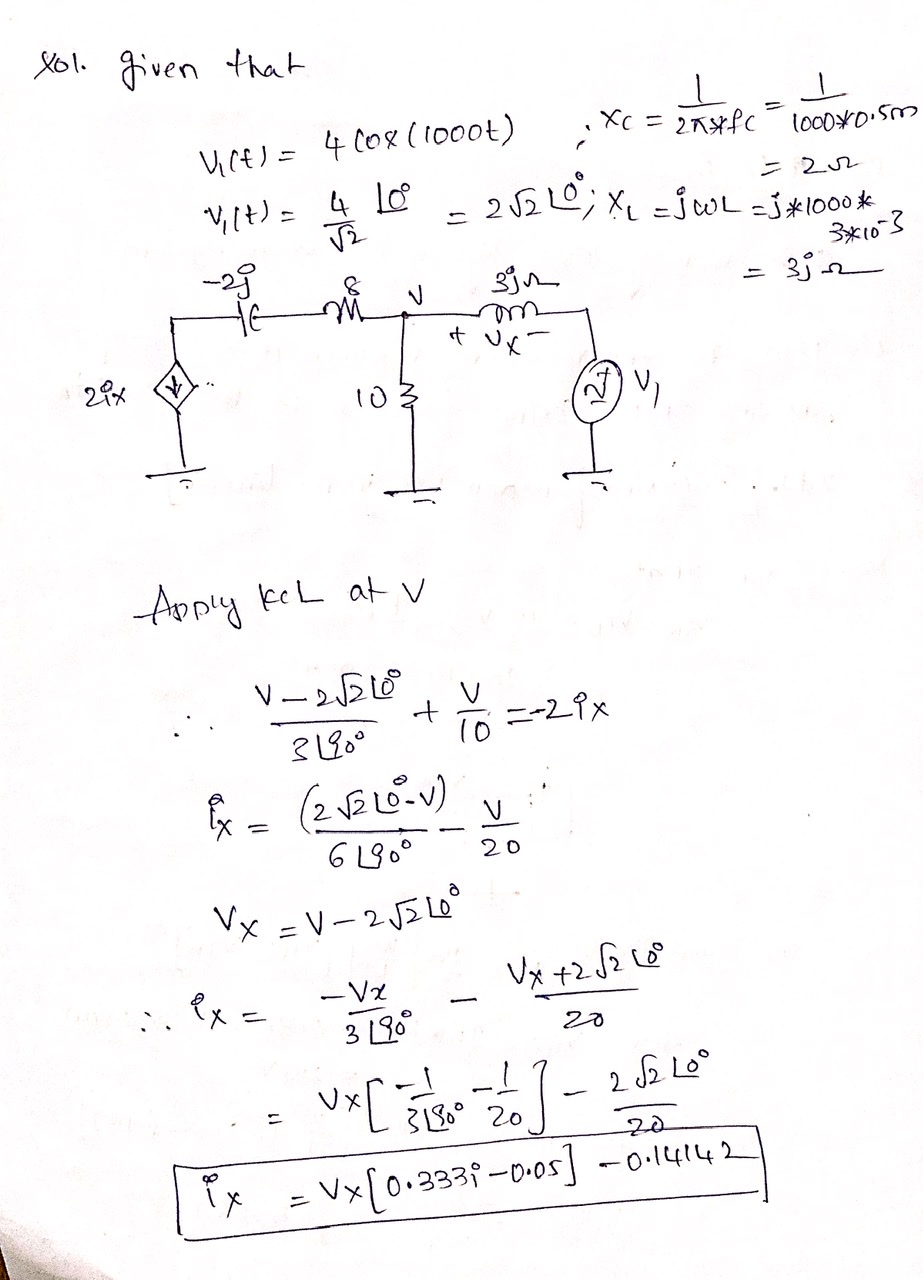 Sol. given that
V₁(t) = 4 cos(1000t) ; Xc = 1/(2π*fc) = 1/(1000*0.5m)
= 2Ω
V₁(t) = 4/√2 ∠0° = 2√2 ∠0° ; X_L = jωL = j*1000*
3*10⁻³
= 3jΩ
-2j 8 V 3jΩ
+ Vx -
2ix 10 + V₁
Apply KCL at V
∴ (V - 2√2∠0°)/(3∠90°) + V/10 = -2ix
ix = (2√2∠0° - V)/(6∠90°) - V/20
Vx = V - 2√2∠0°
∴ ix = -Vx/(3∠90°) - (Vx + 2√2∠0°)/20
= Vx[-1/(3∠90°) - 1/20] - 2√2∠0°/20
ix = Vx[0.333j - 0.05] - 0.14142